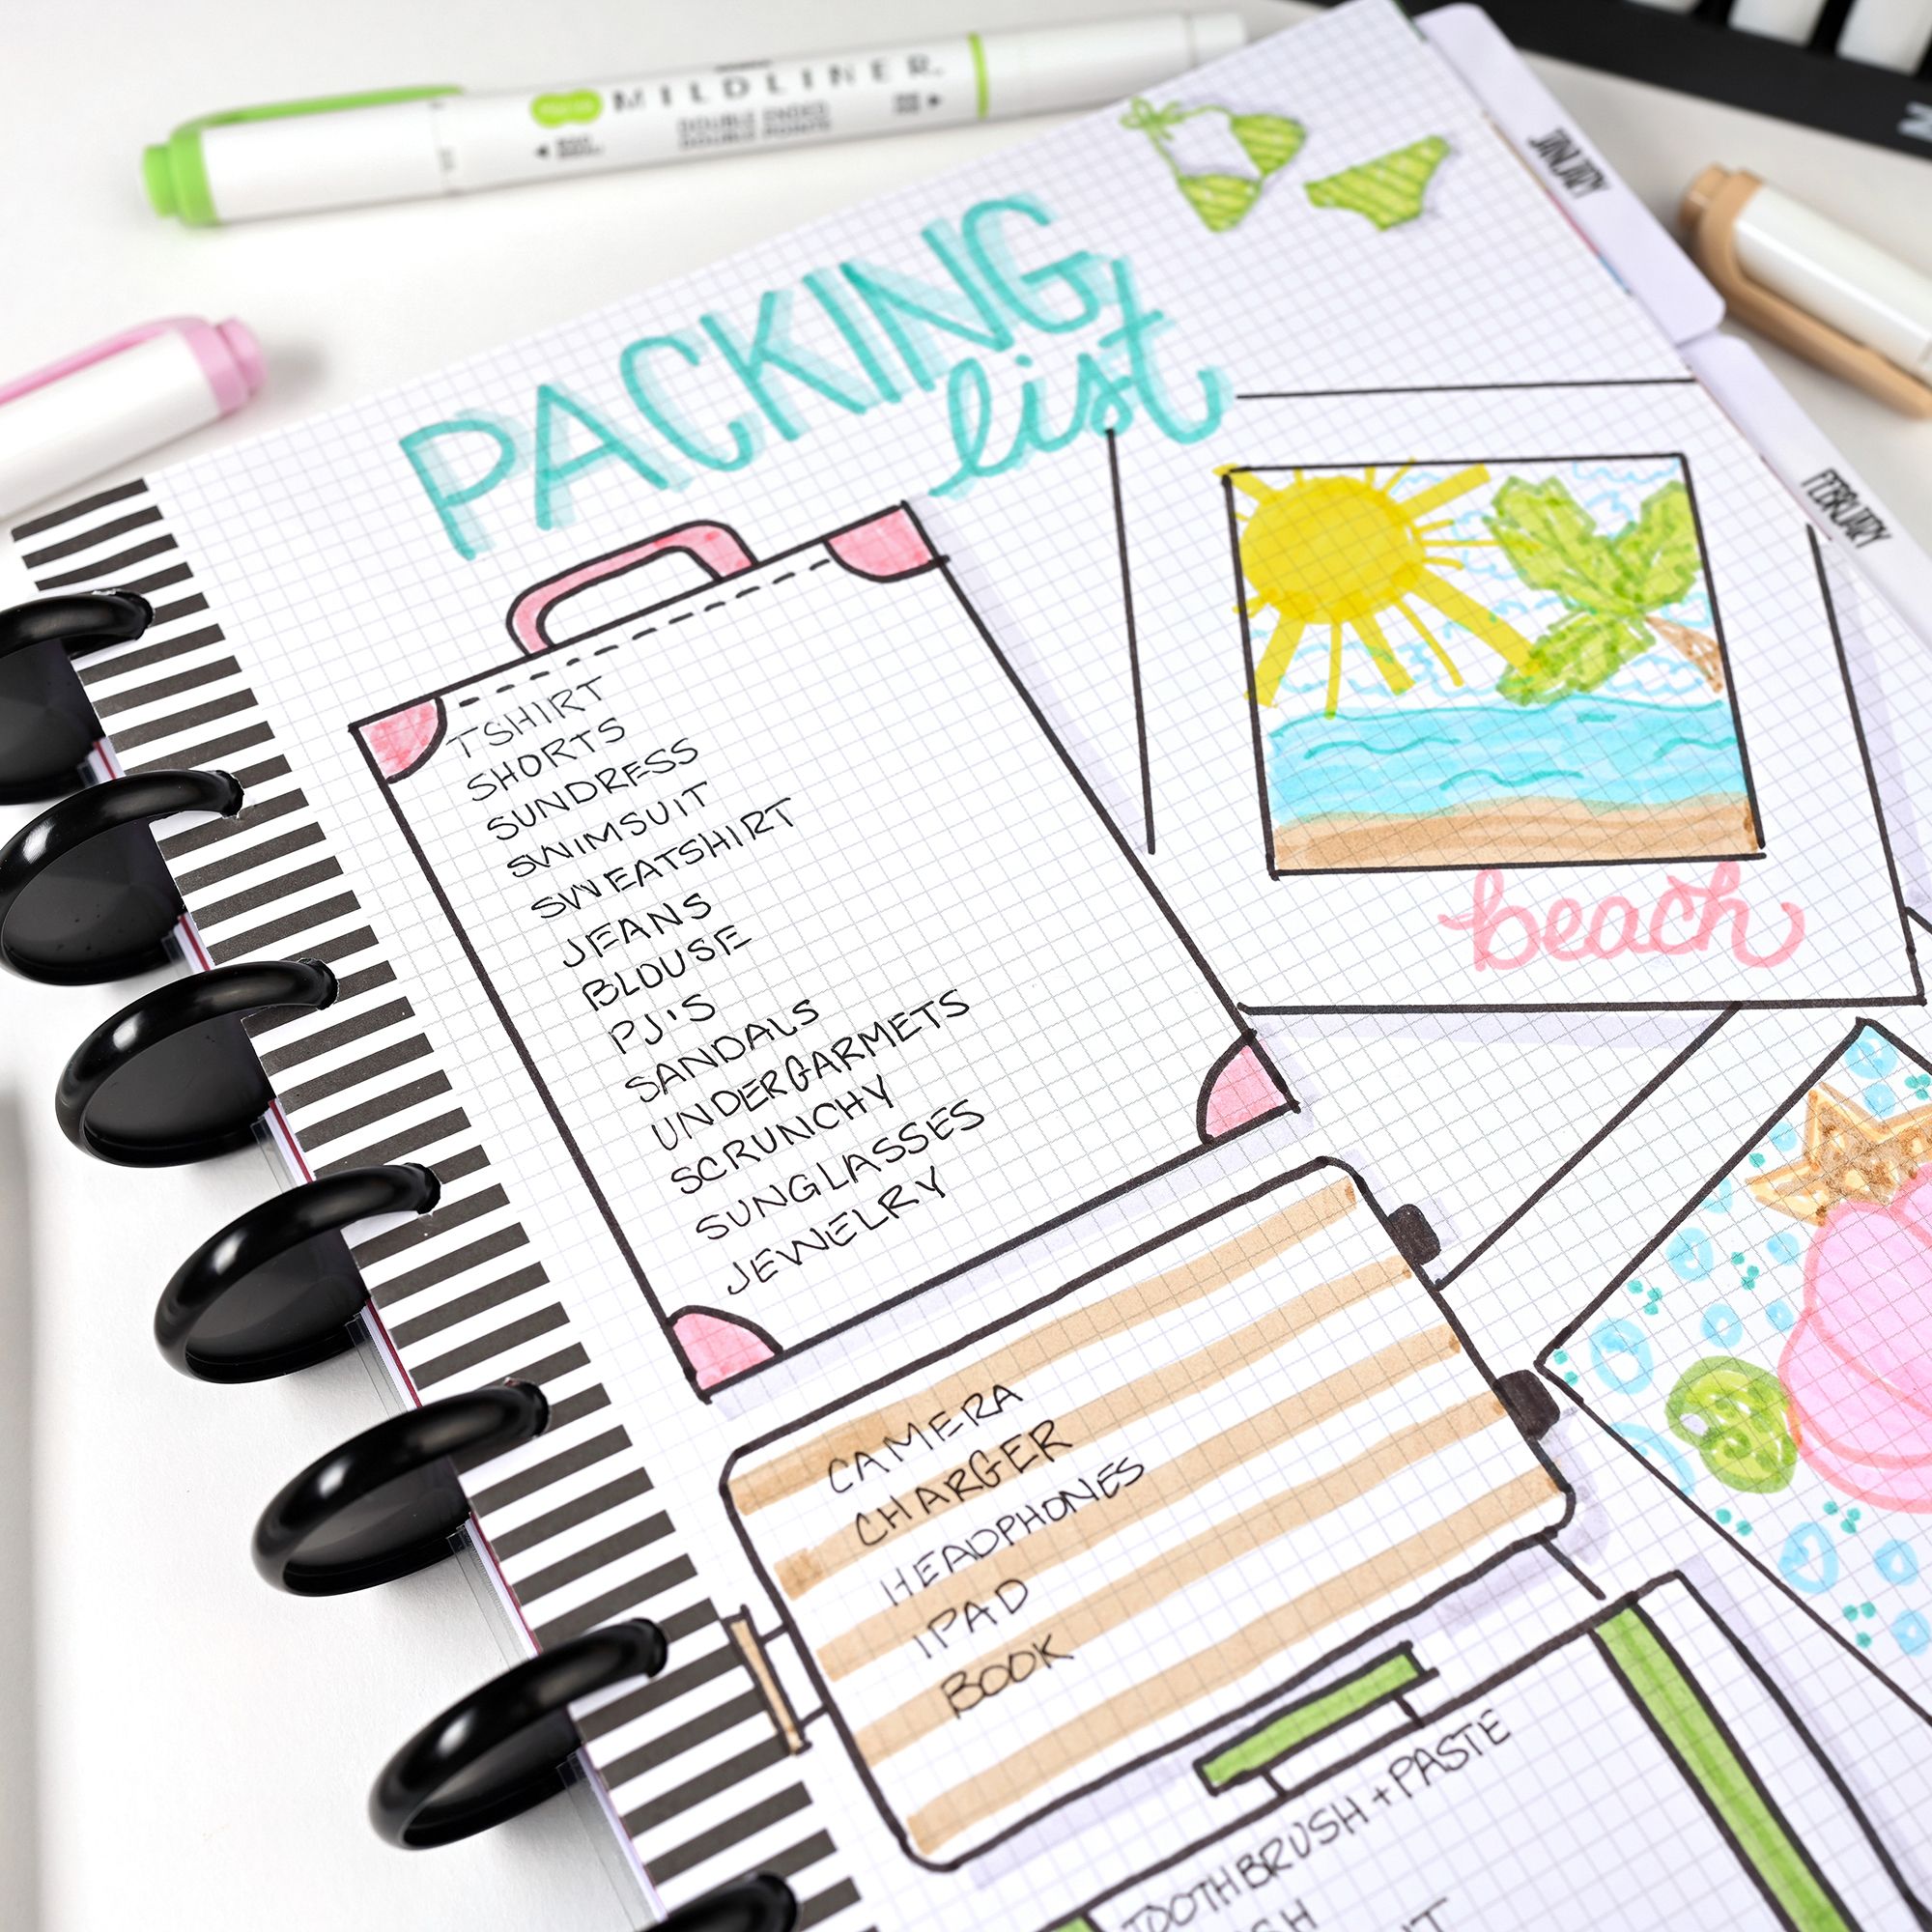 MILDLINER
DOUBLE ENDED
DOUBLE POINTS
JANUARY
FEBRUARY
PACKING
list
TSHIRT
SHORTS
SUNDRESS
SWIMSUIT
SWEATSHIRT
JEANS
BLOUSE
PJ'S
SANDALS
UNDERGARMETS
SCRUNCHY
SUNGLASSES
JEWELRY
beach
CAMERA
CHARGER
HEADPHONES
IPAD
BOOK
TOOTHBRUSH + PASTE